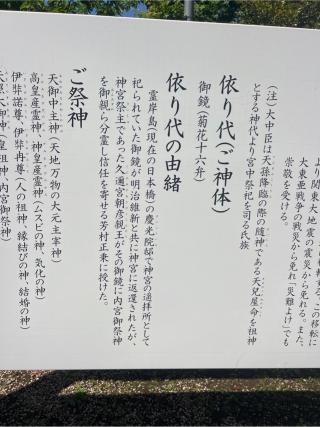 より関東大地震の震災から免れる。また、
大東亜戦争の戦災から免れ「災難よけ」でも
崇敬を受ける。
(注)大中臣は天孫降臨の際の随神である天児屋命を祖神
とする神代より宮中祭祀を司る氏族
依り代(ご神体)
御鏡(菊花十六弁)
依り代の由緒
霊岸島(現在の日本橋)の慶光院邸で神宮の遥拝所として
祀られていた御鏡が明治維新と共に神宮に返還されたが、
神宮祭主であった久邇宮朝彦親王がその御鏡に内宮御祭神
を御親ら分霊し信任を寄せる芳村正秉に授けた。
ご祭神
天御中主神(天地万物の大元 主宰神)
高皇産霊神・神皇産霊神(ムスビの神 気化の神)
伊弉諾尊、伊弉冉尊(人の祖神、縁結びの神 結婚の神)
天照大御神(皇祖神・内宮御祭神)